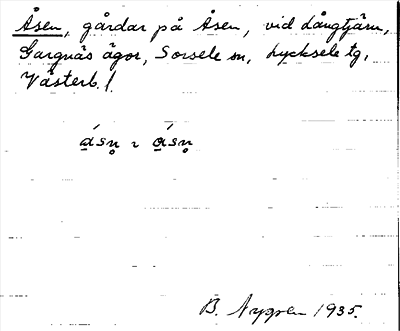 Åsen, gårdar på Åsen, vid Långtjärn,
Gargnäs ägor, Sorsele sn, Lycksele tg,
Västerb. l.
ásn̥ ~ ásn̥
B. Nygren 1935.